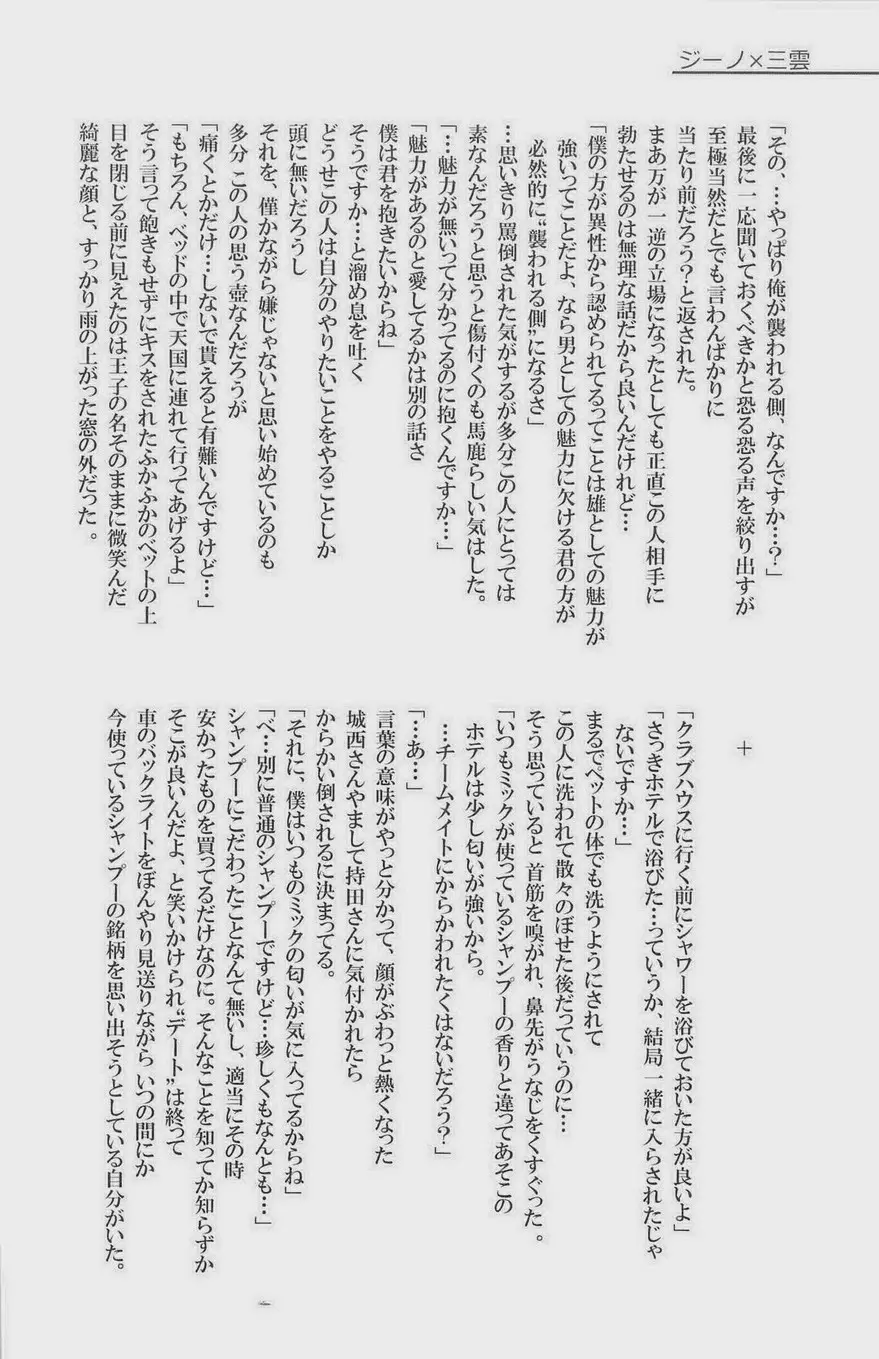 ジーノ×三雲
「その、…やっぱり俺が襲われる側、なんですか…?」
最後に一応聞いておくべきかと恐る恐る声を絞り出すが
至極当然だとでも言わんばかりに
当たり前だろう?と返された。
まあ万が一逆の立場になったとしても正直この人相手に
勃たせるのは無理な話だから良いんだけれど…
「僕の方が異性から認められてるってことは雄としての魅力が
強いってことだよ、なら男としての魅力に欠ける君の方が
必然的に“襲われる側”になるさ」
…思いきり罵倒された気がするが多分この人にとっては
素なんだろうと思うと傷付くのも馬鹿らしい気はした。
「…魅力が無いって分かってるのに抱くんですか…」
「魅力があるのと愛してるかは別の話さ
僕は君を抱きたいからね」
そうですか…と溜め息を吐く
どうせこの人は自分のやりたいことをやることしか
頭に無いだろうし
それを、僅かながら嫌じゃないと思い始めているのも
多分 この人の思う壺なんだろうが
「痛くとかだけ…しないで貰えると有難いんですけど…」
「もちろん、ベッドの中で天国に連れて行ってあげるよ」
そう言って飽きもせずにキスをされたふかふかのベットの上
目を閉じる前に見えたのは王子の名そのままに微笑んだ
綺麗な顔と、すっかり雨の上がった窓の外だった。
+
「クラブハウスに行く前にシャワーを浴びておいた方が良いよ」
「さっきホテルで浴びた…っていうか、結局一緒に入らされたじゃ
ないですか…」
まるでペットの体でも洗うようにされて
この人に洗われて散々のぼせた後だっていうのに…
そう思っていると 首筋を嗅がれ、鼻先がうなじをくすぐった。
「いつもミックが使っているシャンプーの香りと違ってあそこの
ホテルは少し匂いが強いから。
…チームメイトにからかわれたくはないだろう?」
「…あ…」
言葉の意味がやっと分かって、顔がぶわっと熱くなった
城西さんやまして持田さんに気付かれたら
からかい倒されるに決まってる。
「それに、僕はいつものミックの匂いが気に入ってるからね」
「べ…別に普通のシャンプーですけど…珍しくもなんとも…」
シャンプーにこだわったことなんて無いし、適当にその時
安かったものを買ってるだけなのに。そんなことを知ってか知らずか
そこが良いんだよ、と笑いかけられ“デート”は終って
車のバックライトをぼんやり見送りながら いつの間にか
今使っているシャンプーの銘柄を思い出そうとしている自分がいた。